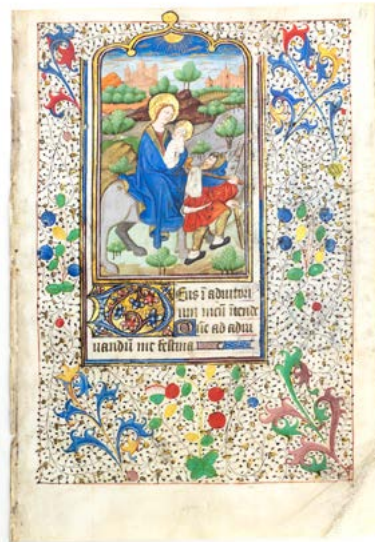 DEus ī adiutori
um meū ītende
Dñe ad adiu
uandū me festina